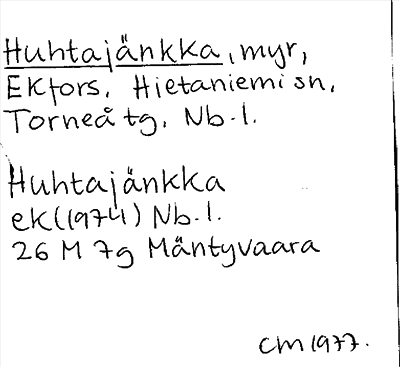 Huhtajänkka, myr,
Ekfors. Hietaniemi sn,
Torneå tg. Nb.l.
Huhtajänkka
ek(1974) Nb.l.
26 M 7g Mäntyvaara
CM 1977.